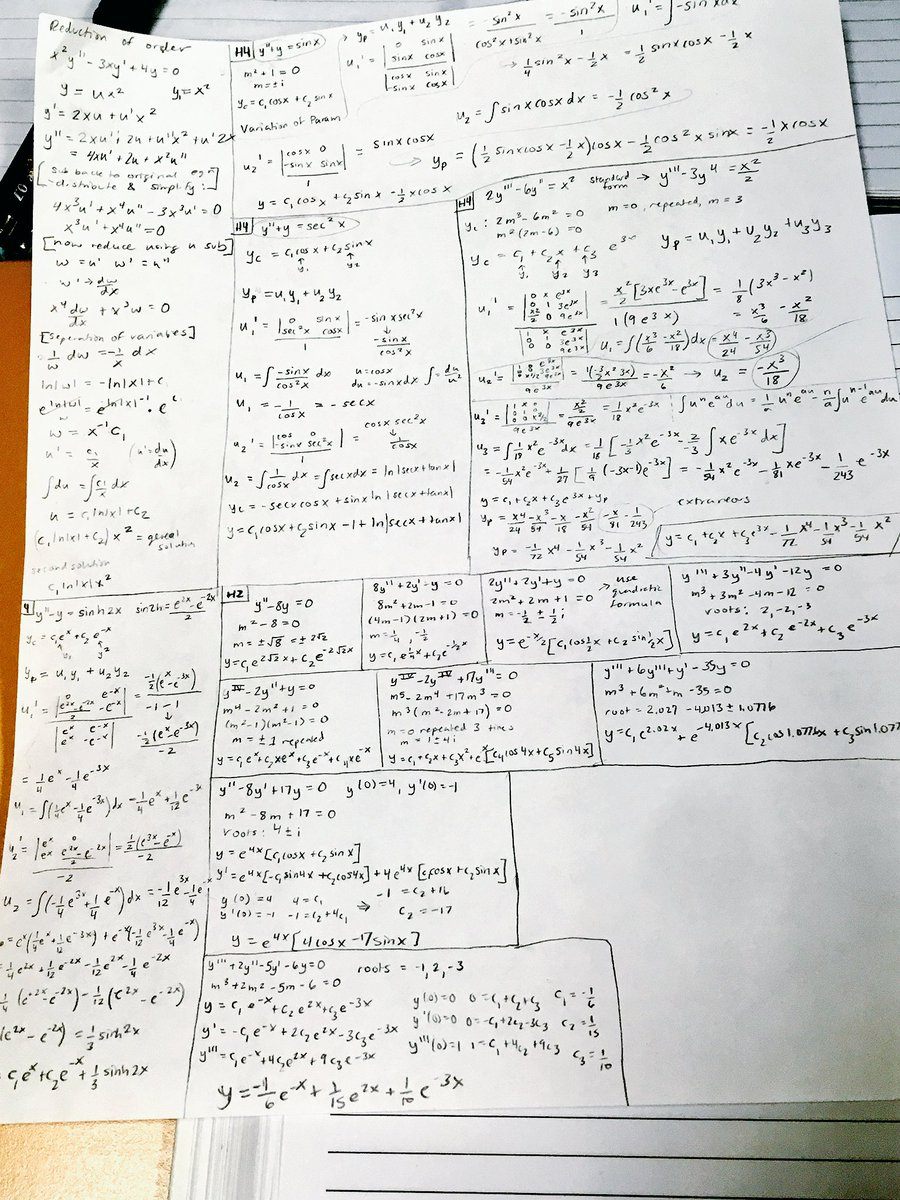 Reduction of order
x² y'' - 3xy' + 4y = 0
y = ux² y₁ = x²
y' = 2xu + u'x²
y'' = 2xu' + 2u + u''x² + u'2x
= 4xu' + 2u + x²u''
[sub back to original eqn
- distribute & simplify:]
4x³u' + x⁴u'' - 3x³u' = 0
x³u' + x⁴u'' = 0
[now reduce using u sub]
w = u' w' = u''
w' → dw/dx
x⁴ dw/dx + x³w = 0
[seperation of variables]
1/w dw = -1/x dx
ln|w| = -ln|x| + c
e^ln|w| = e^-ln|x| · e^c
w = x⁻¹ c₁
u' = c₁/x (u' = du/dx)
∫du = ∫c₁/x dx
u = c₁ln|x| + c₂
(c₁ln|x| + c₂) x² = general solution
second solution
c₁ ln|x| x²
H4 y'' + y = sinx
m² + 1 = 0
m = ± i
y_c = c₁cosx + c₂sinx
Variation of Param
→ y_p = u₁y₁ + u₂y₂
u₁' = |0 sinx; sinx cosx| / |cosx sinx; -sinx cosx| = -sin²x / cos²x + sin²x = -sin²x / 1
u₁' = ∫-sinx dx
→ 1/4 sin²x - 1/2 x = 1/2 sinxcosx - 1/2 x
u₂' = |cosx 0; -sinx sinx| / 1 = sinxcosx
u₂ = ∫sinxcosx dx = -1/2 cos²x
→ y_p = (1/2 sinxcosx - 1/2 x)cosx - 1/2 cos²x sinx = -1/2 xcosx
y = c₁cosx + c₂sinx - 1/2 xcosx
H4 y'' + y = sec²x
y_c = c₁cosx + c₂sinx
y₁ y₂
y_p = u₁y₁ + u₂y₂
u₁' = |0 sinx; sec²x cosx| / 1 = -sinxsec²x
-sinx / cos²x
u₁ = ∫ -sinx/cos²x dx u = cosx du = -sinxdx ∫ = du/u²
u₁ = -1/cosx = -secx
u₂' = |cos 0; -sinx sec²x| / 1 = cosxsec²x
↓ 1/cosx
u₂ = ∫1/cosx dx = ∫secxdx = ln|secx + tanx|
y_c = -secxcosx + sinxln|secx + tanx|
y = c₁cosx + c₂sinx - 1 + ln|secx + tanx|
H4 2y''' - 6y'' = x² standard form → y''' - 3y'' = x²/2
y_c: 2m³ - 6m² = 0 m = 0, repeated, m = 3
m²(2m - 6) = 0
y_c = c₁ + c₂x + c₃e^3x y_p = u₁y₁ + u₂y₂ + u₃y₃
y₁ y₂ y₃
u₁' = |0 x e^3x; 0 1 3e^3x; x²/2 0 9e^3x| / |1 x e^3x; 0 1 3e^3x; 0 0 9e^3x| = x²/2 [3xe^3x - e^3x] / 1(9e^3x) = 1/18 (3x³ - x²)
= x³/6 - x²/18
u₁ = ∫(x³/6 - x²/18)dx = x⁴/24 - x³/54
= -x²/6 → u₂ = -x³/18
= 1/18 x²e^-3x ∫uⁿe^au du = 1/a uⁿe^au - n/a ∫u^n-1 e^au du
u₃ = ∫1/18 x²e^-3x dx = 1/18 [-1/3 x²e^-3x - 2/3 ∫xe^-3x dx]
= -1/54 x²e^-3x + 1/27 [1/9 (-3x-1)e^-3x] = -1/54 x²e^-3x - 1/81 xe^-3x - 1/243 e^-3x
y = c₁ + c₂x + c₃e^3x + y_p
y_p = x⁴/24 - x³/54 - x⁴/18 - x²/54 - x/81 - 1/243 extraneous
y_p = -1/72 x⁴ - 1/54 x³ - 1/54 x²
y = c₁ + c₂x + c₃e^3x - 1/72 x⁴ - 1/54 x³ - 1/54 x²
4 y'' - y = sinh2x sin2h = e^2x - e^-2x / 2
y_c = c₁e^x + c₂e^-x
y₁ y₂
y_p = u₁y₁ + u₂y₂
= 1/4 e^x - 1/4 e^-3x
u₁ = ∫(1/4 e^x - 1/4 e^-3x)dx = 1/4 e^x + 1/12 e^-3x
u₂ = ∫(-1/4 e^3x + 1/4 e^-x)dx = -1/12 e^3x - 1/4 e^-x
= e^x(1/4 e^x + 1/12 e^-3x) + e^-x(-1/12 e^3x - 1/4 e^-x)
1/4 e^2x + 1/12 e^-2x - 1/12 e^2x - 1/4 e^-2x
1/4 (e^2x - e^-2x) - 1/12 (e^2x - e^-2x)
(e^2x - e^-2x) = 1/3 sinh2x
= c₁e^x + c₂e^-x + 1/3 sinh2x
H2
y'' - 8y = 0
m² - 8 = 0
m = ±√8 = ±2√2
y = c₁e^2√2x + c₂e^-2√2x
8y'' + 2y' - y = 0
8m² + 2m - 1 = 0
(4m - 1)(2m + 1) = 0
m = 1/4, -1/2
y = c₁e^1/4x + c₂e^-1/2x
2y'' + 2y' + y = 0
2m² + 2m + 1 = 0 → use quadratic formula
m = -1/2 ± 1/2 i
y = e^-x/2 [c₁cos1/2x + c₂sin1/2x]
y''' + 3y'' - 4y' - 12y = 0
m³ + 3m² - 4m - 12 = 0
roots: 2, -2, -3
y = c₁e^2x + c₂e^-2x + c₃e^-3x
y^IV - 2y'' + y = 0
m⁴ - 2m² + 1 = 0
(m² - 1)(m² - 1) = 0
m = ±1 repeated
y = c₁e^x + c₂xe^x + c₃e^-x + c₄xe^-x
y^V - 2y^IV + 17y''' = 0
m⁵ - 2m⁴ + 17m³ = 0
m³(m² - 2m + 17) = 0
m = 0 repeated 3 times
m = 1 ± 4i
y = c₁ + c₂x + c₃x² + e^x[c₄cos4x + c₅sin4x]
y''' + 6y'' + y' - 35y = 0
m³ + 6m² + m - 35 = 0
root = 2.027 -4.013 ± 1.0776
y = c₁e^2.02x + e^-4.013x [c₂cos1.0776x + c₃sin1.077
y'' - 8y' + 17y = 0 y(0) = 4, y'(0) = -1
m² - 8m + 17 = 0
roots: 4 ± i
y = e^4x[c₁cosx + c₂sinx]
y' = e^4x[-c₁sin4x + c₂cos4x] + 4e^4x[c₁cosx + c₂sinx]
y(0) = 4 4 = c₁
y'(0) = -1 -1 = c₂ + 4c₁ ⇒ -1 = c₂ + 16
c₂ = -17
y = e^4x[4cosx - 17sinx]
y''' + 2y'' - 5y' - 6y = 0 roots = -1, 2, -3
m³ + 2m² - 5m - 6 = 0
y = c₁e^-x + c₂e^2x + c₃e^-3x y(0) = 0 0 = c₁ + c₂ + c₃ c₁ = -1/6
y' = -c₁e^-x + 2c₂e^2x - 3c₃e^-3x y'(0) = 0 0 = -c₁ + 2c₂ - 3c₃ c₂ = 1/15
y''' = c₁e^-x + 4c₂e^2x + 9c₃e^-3x y'''(0) = 1 1 = c₁ + 4c₂ + 9c₃ c₃ = 1/10
y = -1/6 e^-x + 1/15 e^2x + 1/10 e^-3x